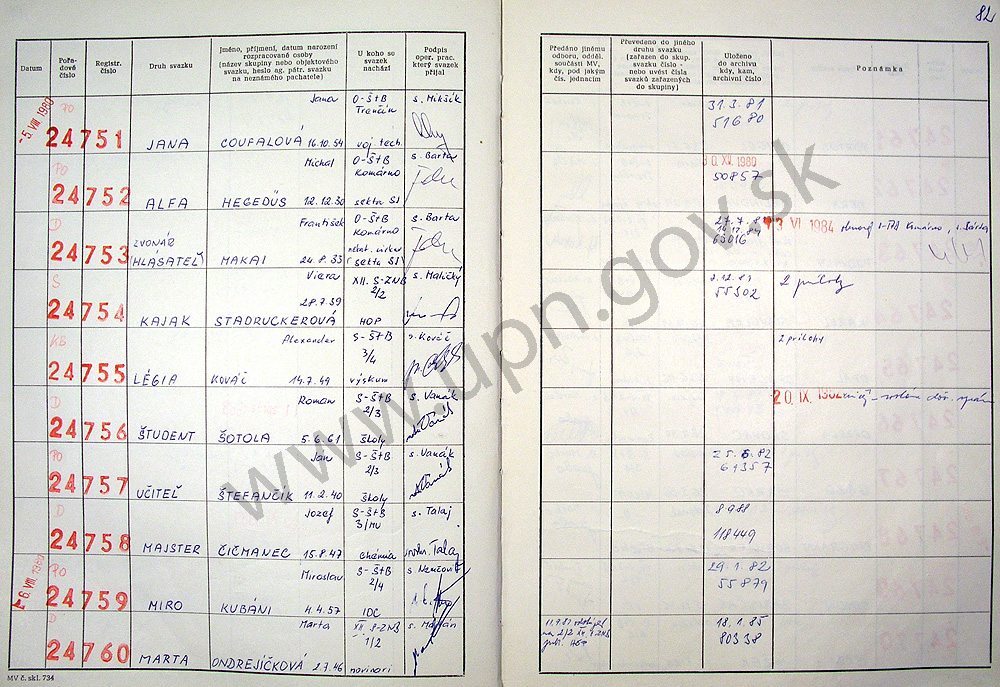 82
Datum
Pořa-
dové
číslo
Registr.
číslo
Druh svazku
Jméno, příjmení, datum narození
rozpracované osoby
(název skupiny nebo objektového
svazku, heslo ag. pátr. svazku
na neznámého pachatele)
U koho se
svazek
nachází
Podpis
oper. prac.
který svazek
přijal
Předáno jinému
odboru, odděl.
součásti MV,
kdy, pod jakým
čís. jednacím
Převedeno do jiného
druhu svazku
(zařazen do skup.
svazku číslo -
nebo uvést čísla
svazků zařazených
do skupiny)
Uloženo
do archivu
kdy, kam,
archivní číslo
Poznámka
-5. VIII. 1980
PO
24751
JANA
Jana
COUFALOVÁ 16.10.54
O-ŠtB
Trenčín
voj. tech.
s. Mikšík
31.3.81
51680
PO
24752
ALFA
Michal
HEGEDÜS 12.12.30
O-ŠtB
Komárno
sekta SJ
s. Barta
30. XII. 1980
50857
D
24753
ZVONÁR
(HLASATEĽ)
František
MAKAI 24.8.33
O-ŠtB
Komárno
(sekta SJ)
s. Barta
63016
VI. 1984
S
24754
KAJAK
Viera
28.7.39
STADRUCKEROVÁ
XII. S-ZNB
2/2
HOP
s. Malický
2.12.81
55302
2 prílohy
KB
24755
LÉGIA
Alexander
KOVÁČ 14.7.49
S-ŠtB
3/4
výskum
s. Kováč
2 prílohy
D
24756
ŠTUDENT
Roman
ŠOTOLA 5.6.61
S-ŠtB
2/3
školy
s. Vanák
20. IX. 1982
PO
24757
UČITEĽ
Jan
ŠTEFANČÍK 11.2.40
S-ŠtB
2/3
školy
s. Vanák
25.5.82
61357
D
24758
MAJSTER
Jozef
ČIČMANEC 15.8.47
S-ŠtB
chémia
s. Talaj
8.988
118449
6. VIII. 1980
PO
24759
MIRO
Miroslav
KUBÁNI 4.4.57
S-ŠtB
2/4
IDC
29.1.82
55879
D
24760
MARTA
Marta
ONDREJÍČKOVÁ 2.7.46
XII. S-ZNB
1/2
novinari
18.1.85
80338
MV č. skl. 734
www.upn.gov.sk